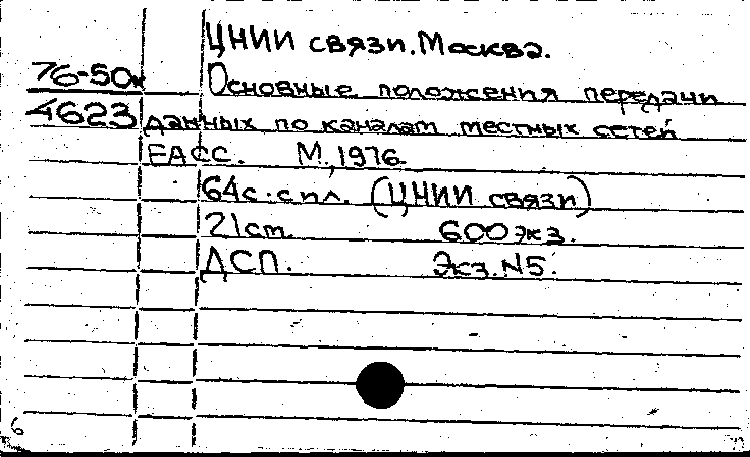 ЦНИИ связи. Москва.
76-50к Основные положения передачи
4623 данных по каналам местных сетей
ЕАСС. М., 1976
64с. с ил. (ЦНИИ связи)
21 см. 600 экз.
ДСП. Экз. N5.
6